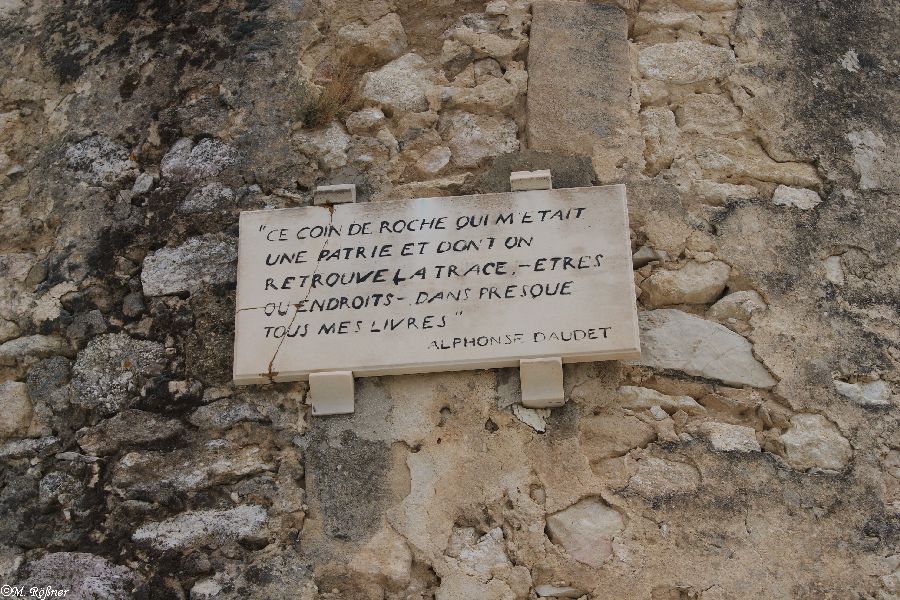 "CE COIN DE ROCHE QUI M'ETAIT
UNE PATRIE ET DONT ON
RETROUVE LA TRACE, - ETRES
OU ENDROITS -, DANS PRESQUE
TOUS MES LIVRES"
ALPHONSE DAUDET
©M. Rößner